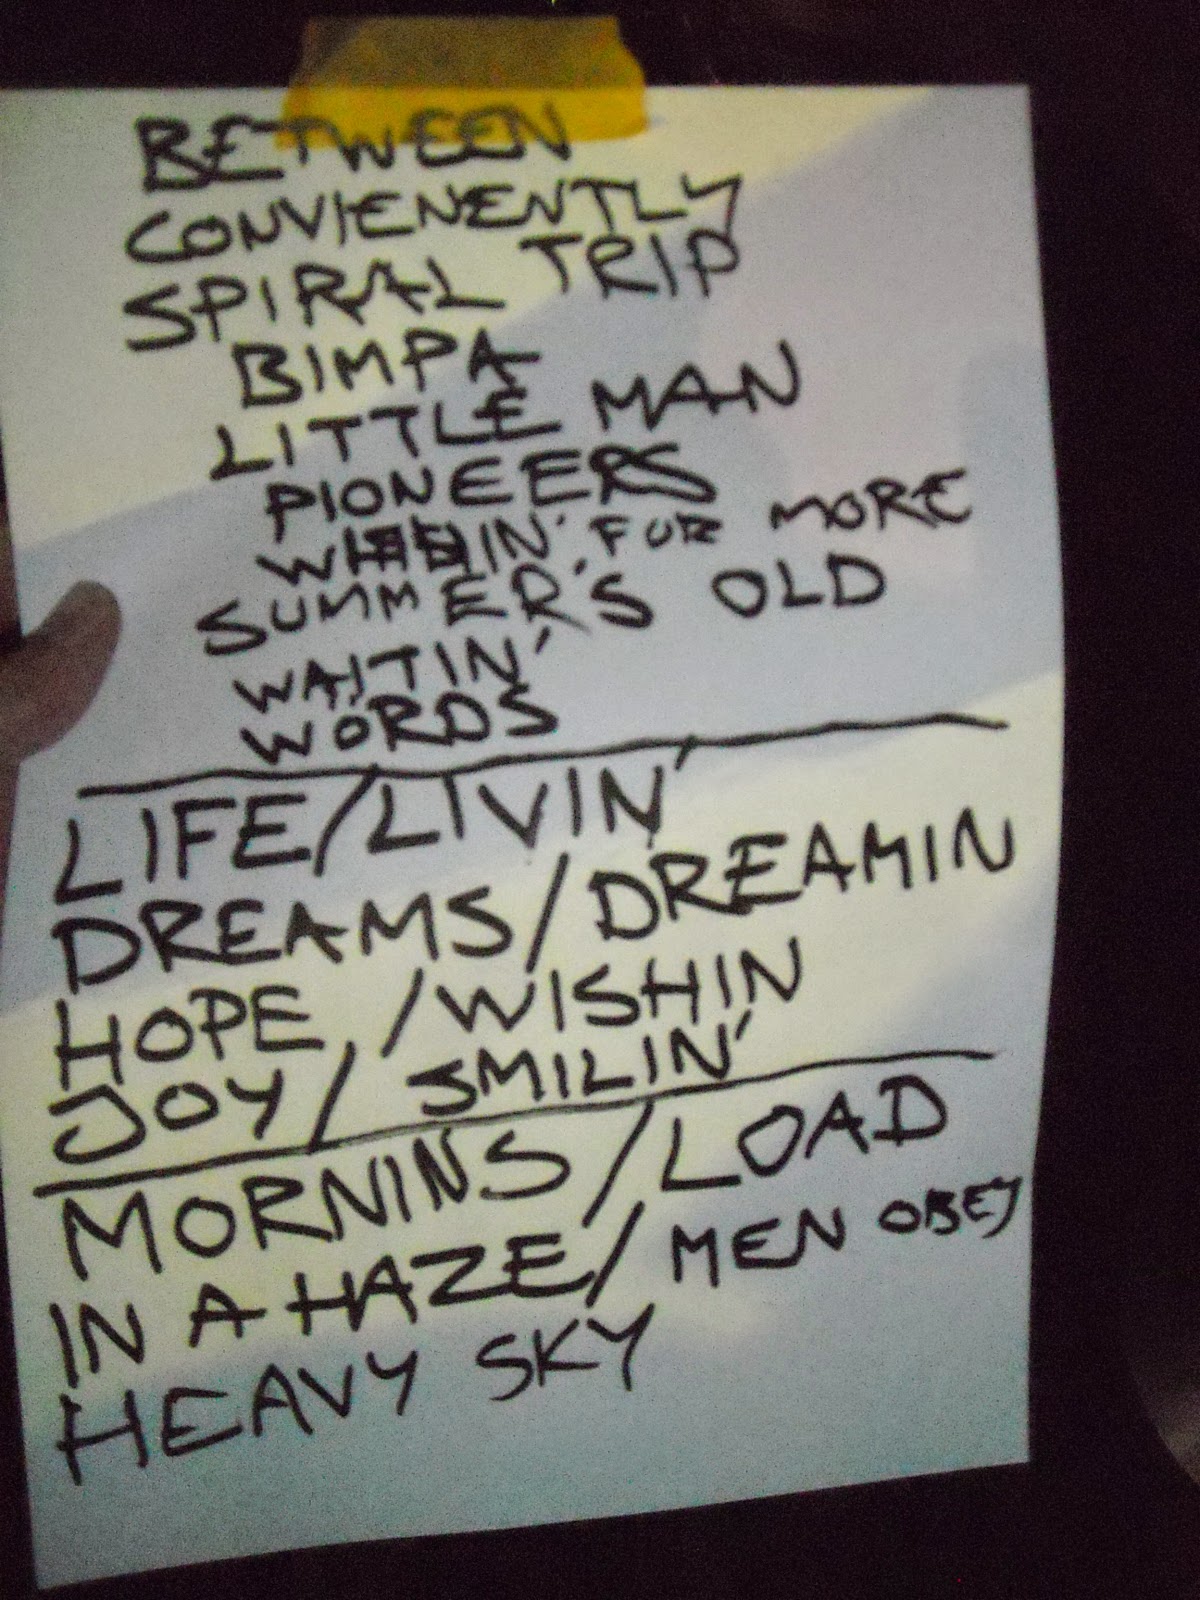 BETWEEN
CONVIENENTLY
SPIRAL TRIP
BIMPA
LITTLE MAN
PIONEERS
FOR MORE
SUMMER'S OLD
WAITIN'
WORDS
LIFE/LIVIN'
DREAMS/DREAMIN
HOPE/WISHIN
JOY/SMILIN'
MORNINS/LOAD
IN A HAZE/MEN OBEY
HEAVY SKY